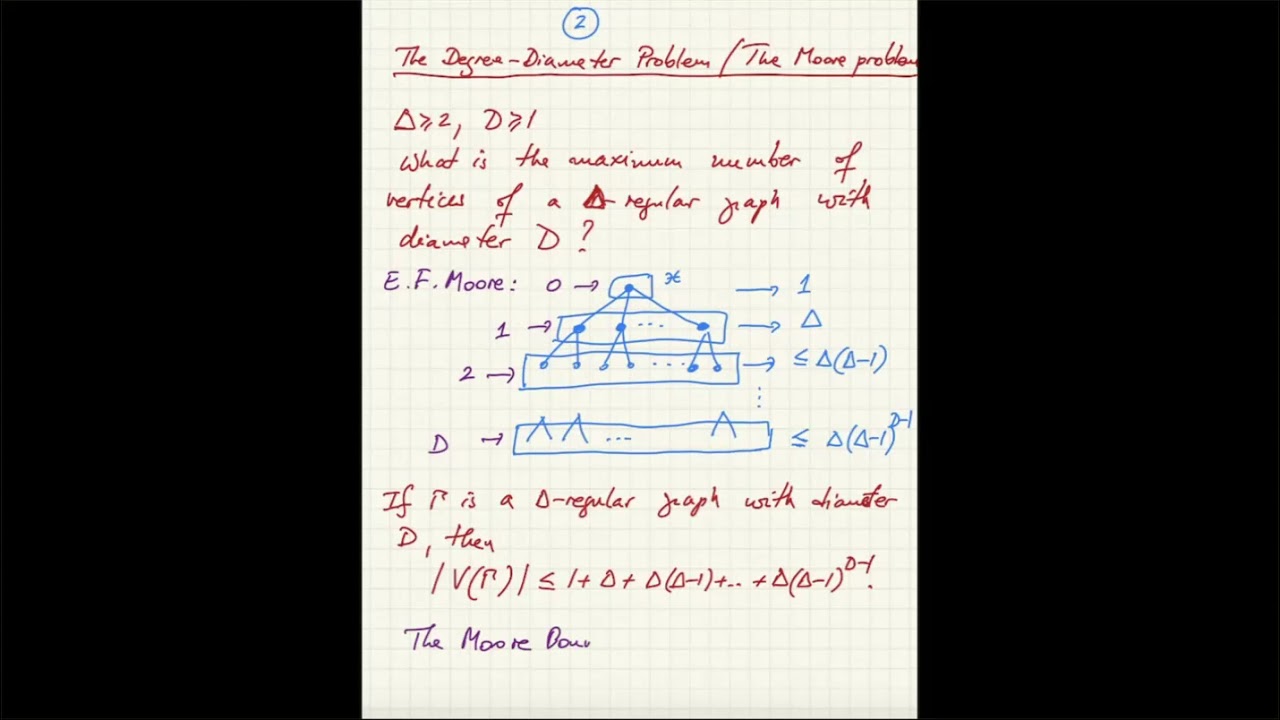 2
The Degree-Diameter Problem / (The Moore problem
Δ⩾2, D⩾1
What is the maximum number of
vertices of a Δ-regular graph with
diameter D?
E.F. Moore: 0 → x → 1
1 → ... → Δ
2 → ... → ≤ Δ(Δ-1)
⋮
D → ... ≤ Δ(Δ-1)^{D-1}
If Γ is a Δ-regular graph with diameter
D, then
|V(Γ)| ≤ 1 + Δ + Δ(Δ-1) + .. + Δ(Δ-1)^{D-1}.
The Moore Bou